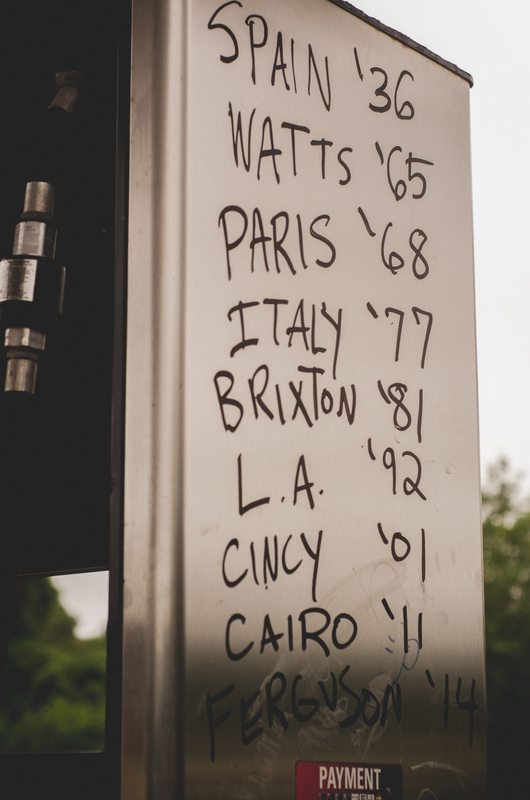 SPAIN '36
WATTS '65
PARIS '68
ITALY '77
BRIXTON '81
L.A. '92
CINCY '01
CAIRO '11
FERGUSON '14
PAYMENT